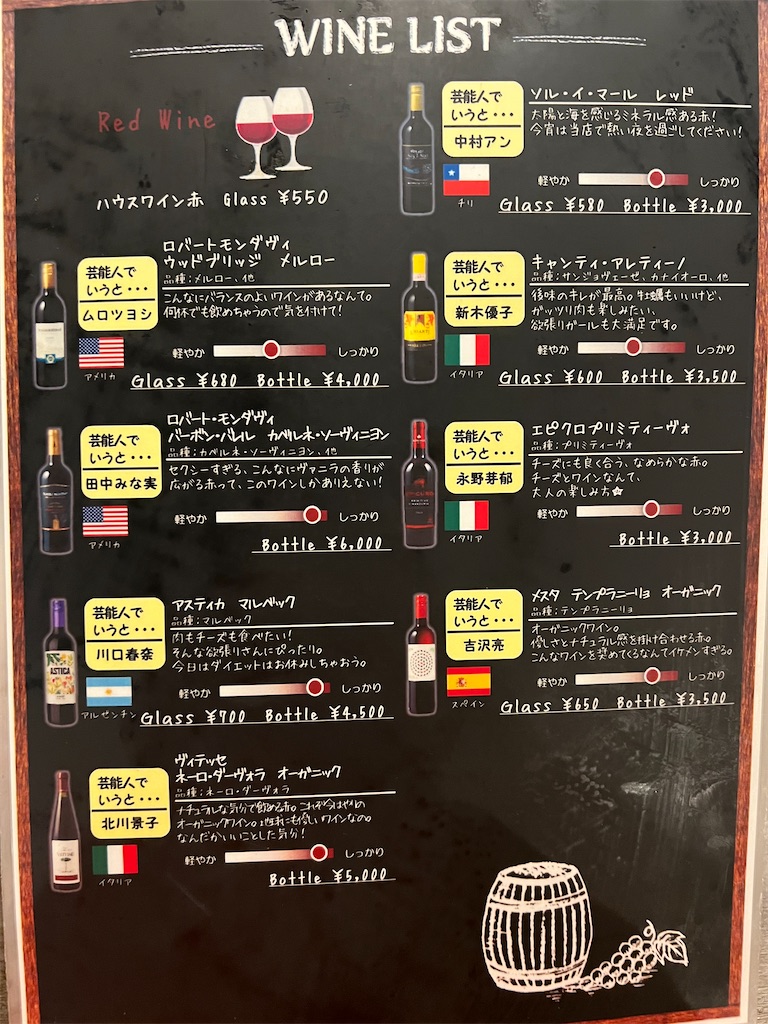 WINE LIST
Red Wine
ハウスワイン赤 Glass ¥550
芸能人で
いうと・・・
中村アン
ソル・イ・マール レッド
太陽と海を感じるミネラル感ある赤!
今宵は当店で熱い夜を過ごしてください!
チリ
軽やか しっかり
Glass ¥580 Bottle ¥3,000
芸能人で
いうと・・・
ムロツヨシ
ロバートモンダヴィ
ウッドブリッジ メルロー
品種:メルロー、他
こんなにバランスのよいワインがあるなんて。
何杯でも飲めちゃうので気を付けて!
アメリカ
軽やか しっかり
Glass ¥680 Bottle ¥4,000
芸能人で
いうと・・・
新木優子
キャンティ・アレティーノ
品種:サンジョヴェーゼ、カナイオーロ、他
後味のキレが最高。牡蠣もいいけど、
ガッツリ肉も楽しみたい、
欲張りガールも大満足です。
イタリア
軽やか しっかり
Glass ¥600 Bottle ¥3,500
芸能人で
いうと・・・
田中みな実
ロバート・モンダヴィ
バーボン・バレル カベルネ・ソーヴィニヨン
品種:カベルネ・ソーヴィニヨン、他
セクシーすぎる、こんなにヴァニラの香りが
広がる赤って、このワインしかありえない!
アメリカ
軽やか しっかり
Bottle ¥6,000
芸能人で
いうと・・・
永野芽郁
エピクロプリミティーヴォ
品種:プリミティーヴォ
チーズにも良く合う、なめらかな赤。
チーズとワインなんて、
大人の楽しみ方★
イタリア
軽やか しっかり
Bottle ¥3,000
芸能人で
いうと・・・
川口春奈
アスティカ マルベック
品種:マルベック
肉もチーズも食べたい!
そんな欲張りさんにぴったり。
今日はダイエットはお休みしちゃおう。
ASTICA
アルゼンチン
軽やか しっかり
Glass ¥700 Bottle ¥4,500
芸能人で
いうと・・・
吉沢亮
メスタ テンプラニーリョ オーガニック
品種:テンプラニーリョ
オーガニックワイン。
優しさとナチュラル感を掛け合わせる赤。
こんなワインを奨めてくるなんてイケメンすぎる。
スペイン
軽やか しっかり
Glass ¥650 Bottle ¥3,500
芸能人で
いうと・・・
北川景子
ヴィテッセ
ネーロ・ダーヴォラ オーガニック
品種:ネーロ・ダーヴォラ
ナチュラルな気分で飲める赤。これぞ今はやりの
オーガニックワイン。地球にも優しいワインなの。
なんだかいいことした気分!
イタリア
軽やか しっかり
Bottle ¥5,000